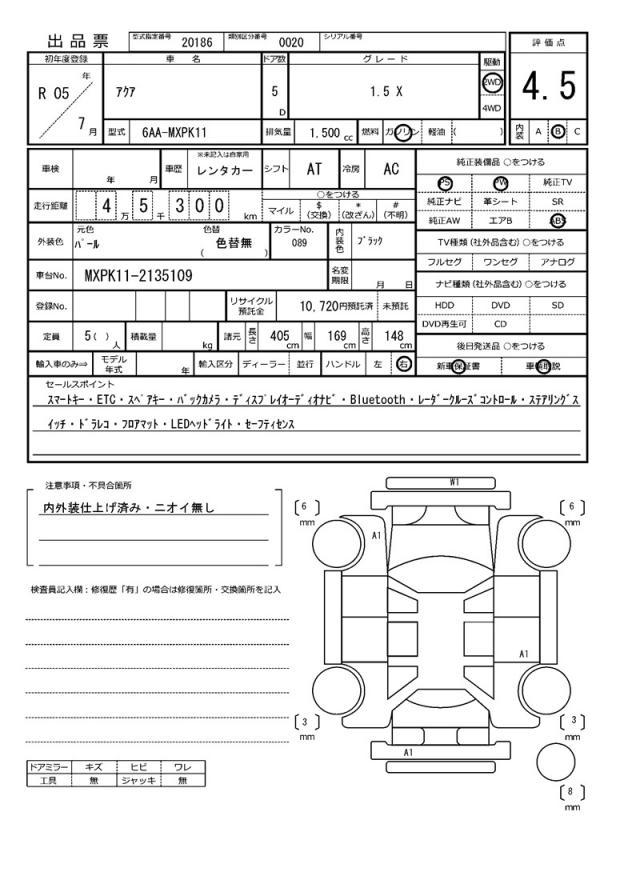 出品票 型式指定番号 20186 類別区分番号 0020 シリアル番号
初年度登録 車名 ドア数 グレード 駆動 評価点
R 05 年 7 月 アクア 5 D 1.5 X 2WD 4WD 4.5
型式 6AA-MXPK11 排気量 1.500 cc 燃料 ガソリン 軽油 ( ) 内装 A B C
車検 年 月 車歴 ※未記入は自家用 レンタカー シフト AT 冷房 AC 純正装備品 ○をつける
PS PW 純正TV
走行距離 4 万 5 千 3 0 0 km ○をつける マイル $ (交換) * (改ざん) # (不明) 純正ナビ 革シート SR
純正AW エアB ABS
外装色 元色 パール 色替 色替無 ( ) カラーNo. 089 内装色 ブラック TV種類 (社外品含む) ○をつける
フルセグ ワンセグ アナログ
車台No. MXPK11-2135109 名変期限 月 日 ナビ種類 (社外品含む) ○をつける
登録No. リサイクル預託金 10,720円預託済 未預託 HDD DVD SD
DVD再生可 CD
定員 5( ) 人 積載量 kg 諸元 長さ 405 cm 幅 169 cm 高さ 148 cm 後日発送品 ○をつける
輸入車のみ⇒ モデル年式 年 輸入区分 ディーラー 並行 ハンドル 左 右 新車保証書 車輌取説
セールスポイント
スマートキー・ETC・スペアキー・バックカメラ・ディスプレイオーディオナビ・Bluetooth・レーダークルーズコントロール・ステアリングス
イッチ・ドラレコ・フロアマット・LEDヘッドライト・セーフティセンス
注意事項・不具合箇所
内外装仕上げ済み・ニオイ無し
検査員記入欄：修復歴「有」の場合は修復箇所・交換箇所を記入
W1
[ 6 ] mm [ 6 ] mm
A1
A1
[ 3 ] mm [ 3 ] mm
A1
[ 8 ] mm
ドアミラー キズ ヒビ ワレ
工具 無 ジャッキ 無